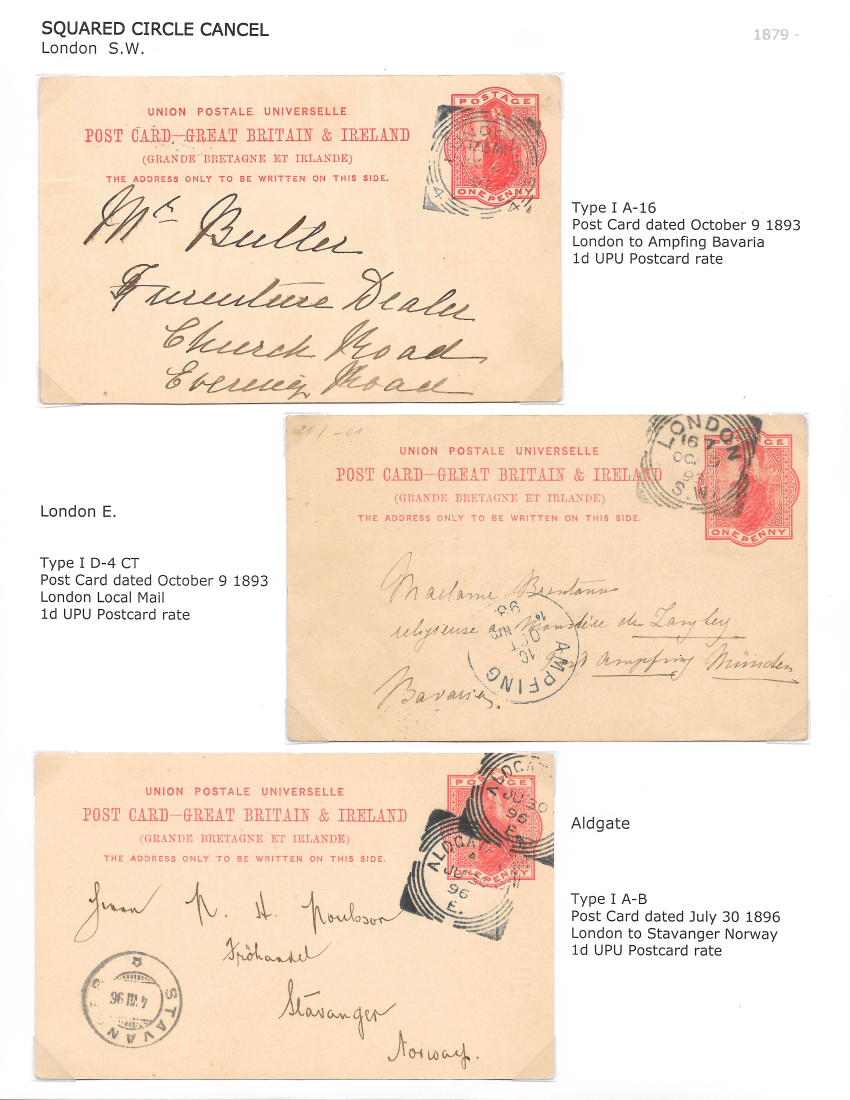 SQUARED CIRCLE CANCEL
London S.W.
1879 -
UNION POSTALE UNIVERSELLE
POST CARD—GREAT BRITAIN & IRELAND
(GRANDE BRETAGNE ET IRLANDE)
THE ADDRESS ONLY TO BE WRITTEN ON THIS SIDE.
POSTAGE
ONE PENNY
Mr Butler
Furenture Dealer
Church Road
Road
Type I A-16
Post Card dated October 9 1893
London to Ampfing Bavaria
1d UPU Postcard rate
London E.
Type I D-4 CT
Post Card dated October 9 1893
London Local Mail
1d UPU Postcard rate
UNION POSTALE UNIVERSELLE
POST CARD—GREAT BRITAIN & IRELAND
(GRANDE BRETAGNE ET IRLANDE)
THE ADDRESS ONLY TO BE WRITTEN ON THIS SIDE.
LONDON
16
OC
S.W.
ONE PENNY
Madame Brentano
religieuse au Monastère de Zangberg
Post Ampfing München
Bavaria.
AMPFING
10
OCT
93
UNION POSTALE UNIVERSELLE
POST CARD—GREAT BRITAIN & IRELAND
(GRANDE BRETAGNE ET IRLANDE)
THE ADDRESS ONLY TO BE WRITTEN ON THIS SIDE.
POSTAGE
ALDGAT
JU 30
96
E.
ALDGAT
JU
96
E.
ONE PENNY
Herrn N. H. Poulsson
Fröhandel
Stavanger
Norway.
STAVAN
4 VIII 96
Aldgate
Type I A-B
Post Card dated July 30 1896
London to Stavanger Norway
1d UPU Postcard rate